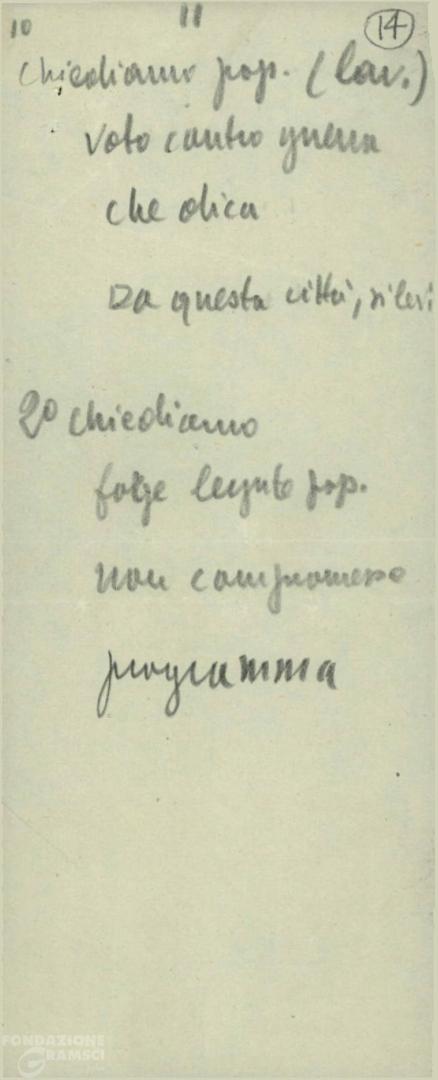 10 11 14
Chiediamo pop. (lav.)
voto contro guerra
che dica
Da questa città,
2º chiediamo
legate pop.
non compromesso
programma
FONDAZIONE
GRAMSCI